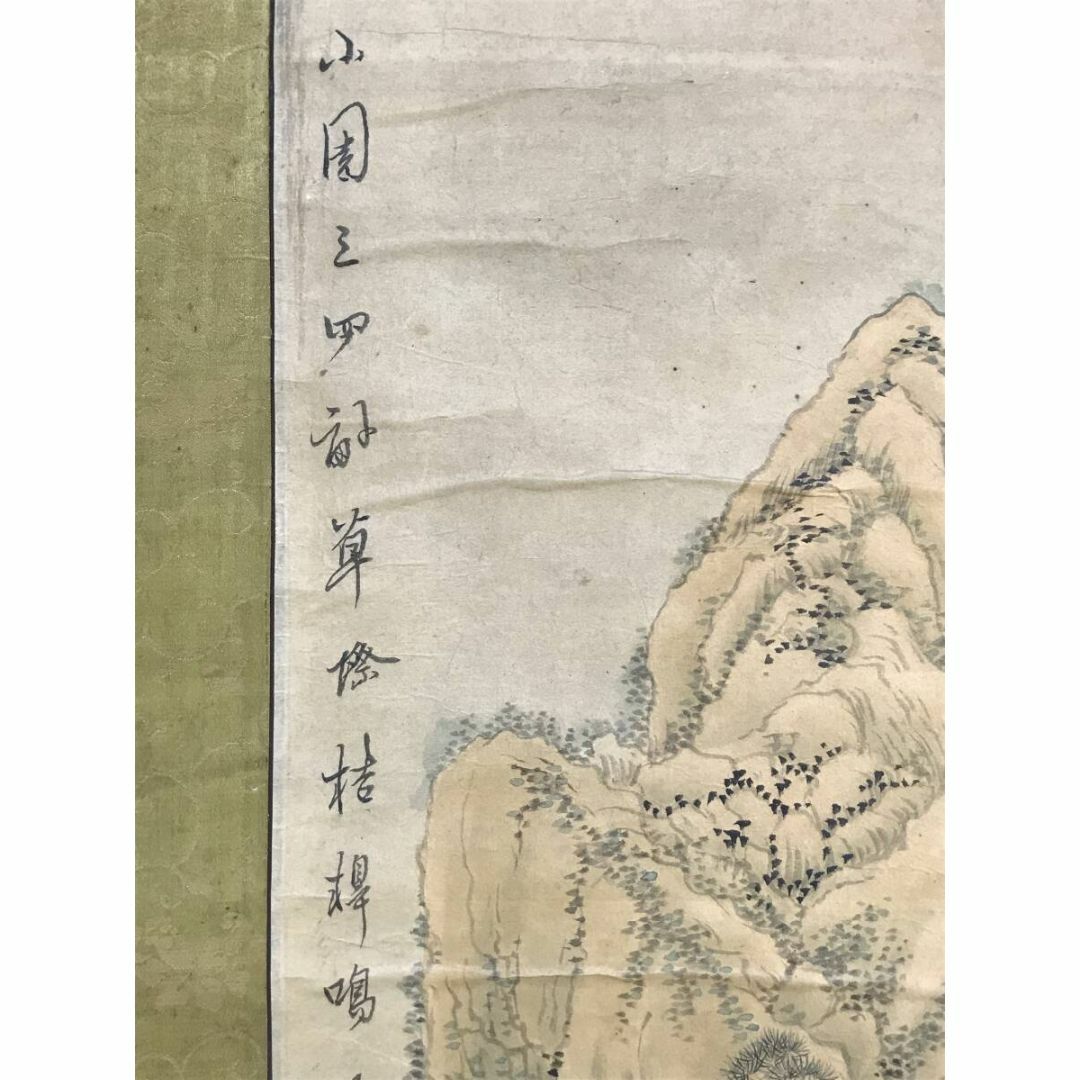 小園三四畝草際桔槹鳴